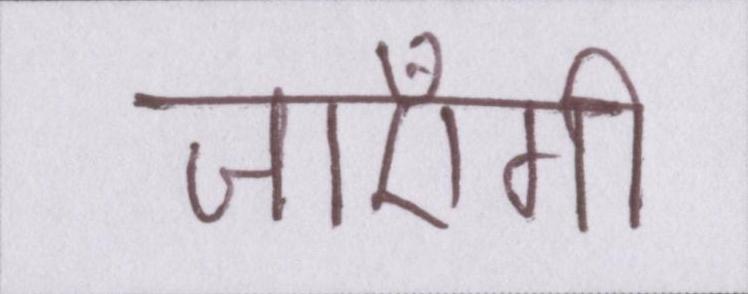 जाएँगी